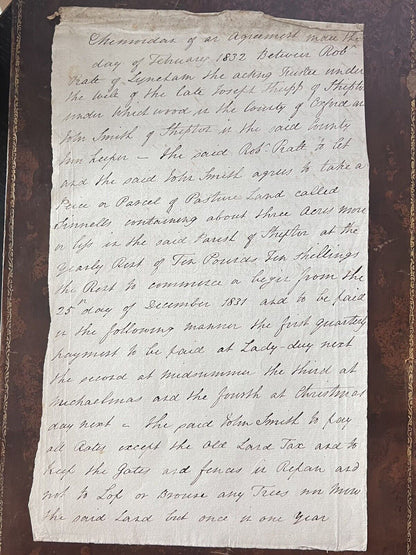 Memordan of an Agreement made the
day of February 1832 Between Robt
Pratt of Lyneham the acting Trustee under
the will of the late Joseph of Shipton
under Whichwood in the County of Oxford and
John Smith of Shipton in the said County
Inn keeper – the said Robt Pratt to let
and the said John Smith agrees to take a
Peice or Parcel of Pasture Land called
containing about three Acres more
or less in the said Parish of Shipton at the
Yearly Rent of Ten Pounds Ten shillings
the Rent to commence or begin from the
25th day of December 1831 and to be paid
in the following manner the first quarterly
payment to be paid at Lady-day next
the second at midsummer the third at
michaelmas and the fourth at Christmas
day next – the said John Smith to pay
all Rates except the Old Land Tax and to
keep the Gates and fences in Repair and
not to Lop or Browse any Trees nor Mow
the said Land but once in one Year